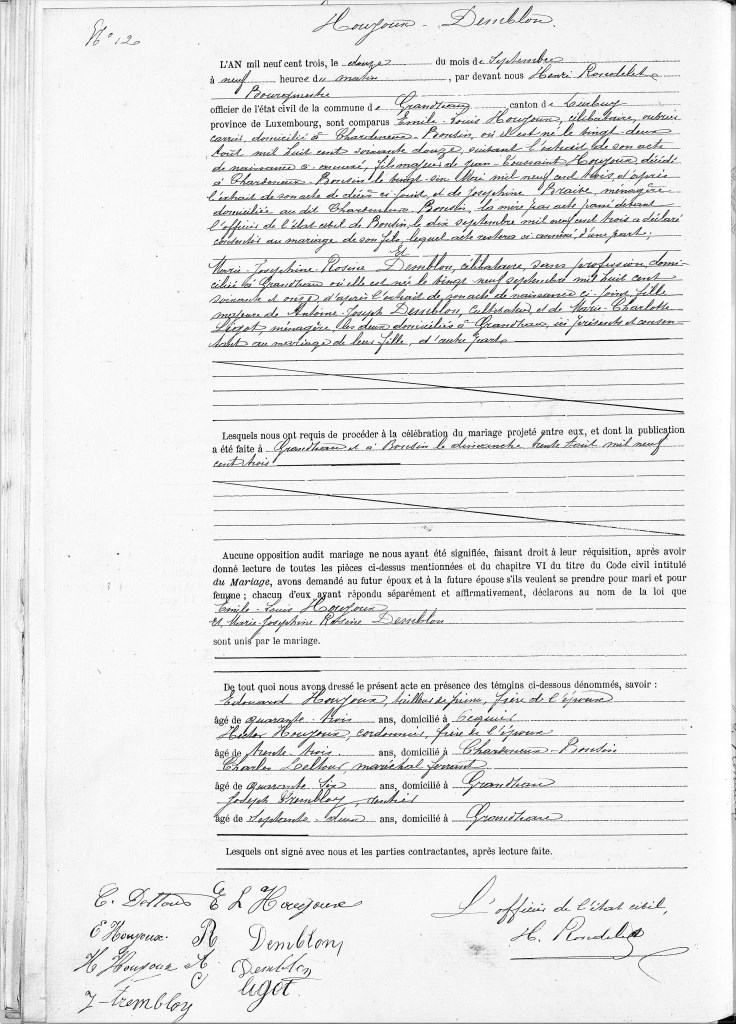 N° 12
Houyoux - Demblon.
L'AN mil neuf cent trois, le douze du mois de Septembre
à neuf heures du matin, par devant nous Henri Rondelet
Bourgmestre
officier de l'état civil de la commune de Grandhan canton de Durbuy
province de Luxembourg, sont comparus Emile-Louis Houyoux, célibataire, ouvrier
carrier, domicilié à Chardeneux-Bonsin, où il est né le vingt-deux
août mil huit cent soixante douze, suivant l'extrait de son acte
de naissance ci-annexé, fils majeur de Jean-Toussaint Houyoux, décédé
à Chardeneux-Bonsin le vingt-six Mai mil neuf cent trois, et après
l'extrait de son acte de décès ci-joint, et de Joséphine Braive, ménagère
domiciliée au dit Chardeneux-Bonsin, la mère par acte passé devant
l'officier de l'état civil de Bonsin, le dix septembre mil neuf cent trois a déclaré
consentir au mariage de son fils, lequel acte restera ci-annexé, d'une part;
Et
Marie-Joséphine Rosine Demblon, célibataire, sans profession, domi-
ciliée à Grandhan où elle est née le vingt neuf septembre mil huit cent
soixante et onze, d'après l'extrait de son acte de naissance ci-joint, fille
majeure de Antoine-Joseph Demblon, Cultivateur, et de Marie-Charlotte
Ligot, ménagère, les deux domiciliés à Grandhan, ici présents et consen-
tant au mariage de leur fille, et d'autre part.
Lesquels nous ont requis de procéder à la célébration du mariage projeté entre eux, et dont la publication
a été faite à Grandhan et à Bonsin le dimanche trente août mil neuf
cent trois.
Aucune opposition audit mariage ne nous ayant été signifiée, faisant droit à leur réquisition, après avoir
donné lecture de toutes les pièces ci-dessus mentionnées et du chapitre VI du titre du Code civil intitulé
du Mariage, avons demandé au futur époux et à la future épouse s'ils veulent se prendre pour mari et pour
femme ; chacun d'eux ayant répondu séparément et affirmativement, déclarons au nom de la loi que
Emile-Louis Houyoux
et Marie-Joséphine Rosine Demblon
sont unis par le mariage.
De tout quoi nous avons dressé le présent acte en présence des témoins ci-dessous dénommés, savoir :
Edouard Houyoux, tailleur de pierre, frère de l'époux
âgé de quarante-trois ans, domicilié à
Hector Houyoux, cordonnier, frère de l'époux
âgé de trente-trois ans, domicilié à Chardeneux-Bonsin
Charles, maréchal ferrant
âgé de quarante six ans, domicilié à Grandhan
Joseph Trembloy, rentier
âgé de septante-deux ans, domicilié à Grandhan
Lesquels ont signé avec nous et les parties contractantes, après lecture faite.
C. E L Houyoux
E Houyoux. R Demblon
H Houyoux A Demblon
C Ligot
J-Trembloy
L'officier de l'état civil,
H. Rondelet